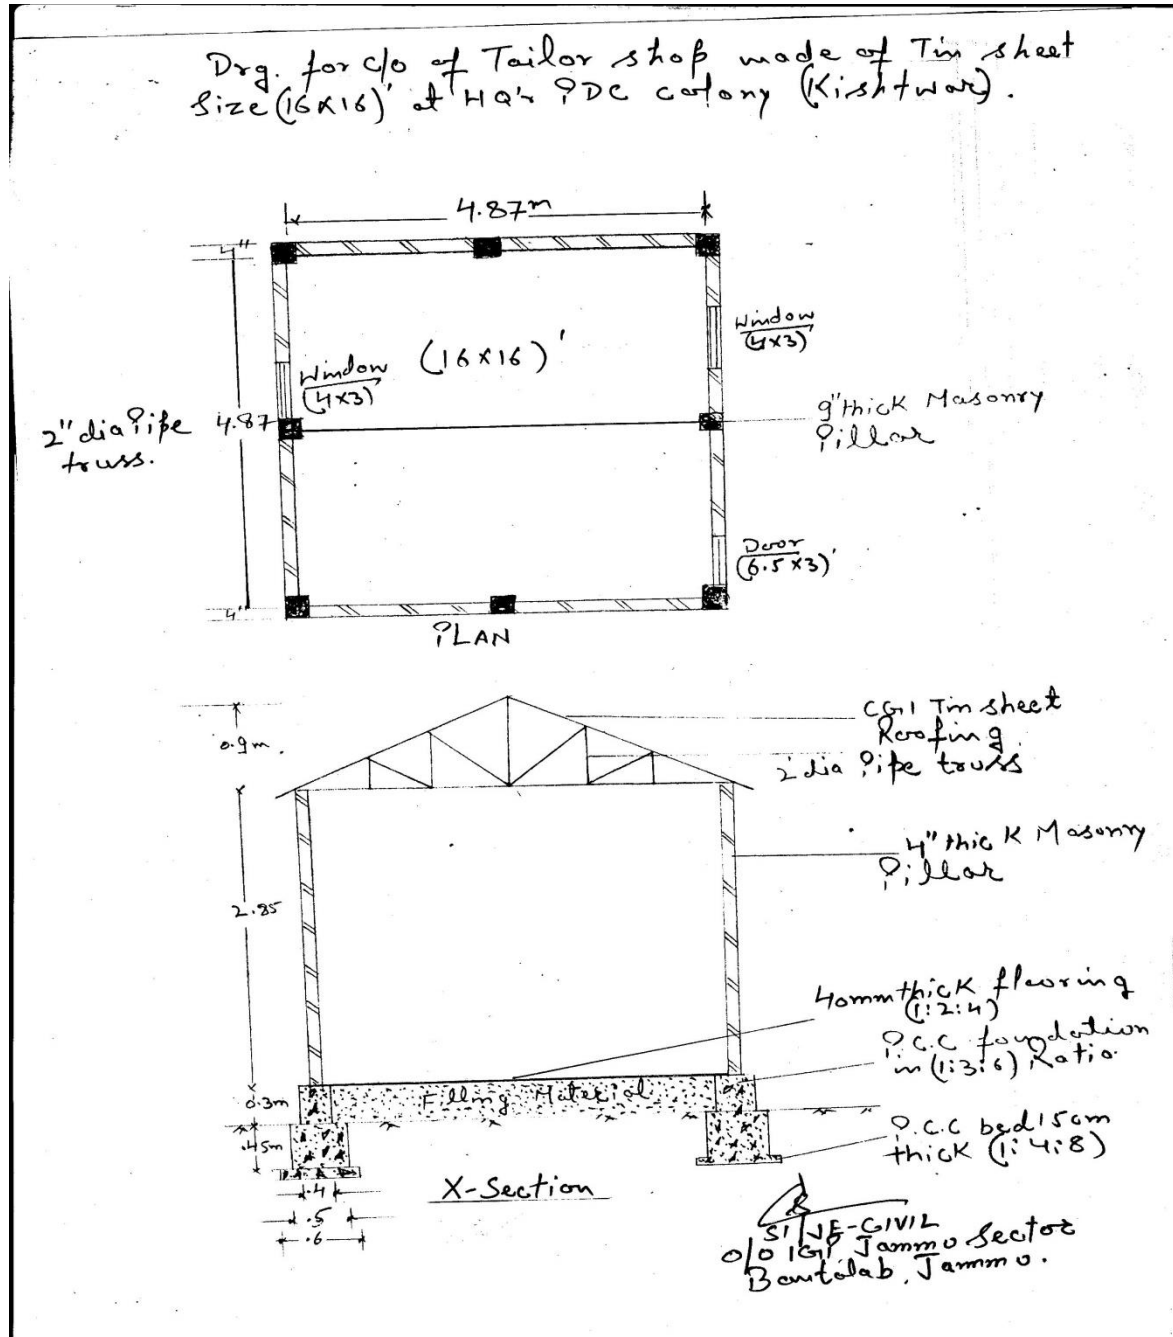 Drg. for c/o of Tailor shop made of Tin sheet
Size (16x16)' at HQ'r PDC colony (Kishtwar).
4.87m
4"
Window
(4x3)'
(16x16)'
Window
(4x3)'
2" dia Pipe
truss.
4.87
9" thick Masonry
Pillar
Door
(6.5x3)'
4"
PLAN
0.9m.
CGI Tin sheet
Roofing
2' dia Pipe truss
4" thick Masonry
Pillar
2.85
40mm thick flooring
(1:2:4)
P.C.C foundation
in (1:3:6) Ratio.
0.3m
Filling Material
.45m
P.C.C bed 15cm
thick (1:4:8)
.4
.5
.6
X-Section
SI/JE-CIVIL
o/o IGP Jammu Sector
Bantalab, Jammu.